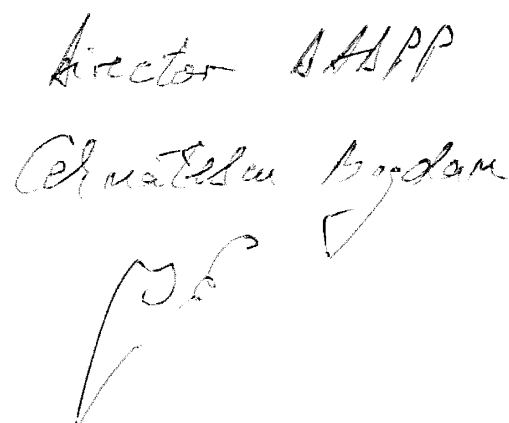 Director DADPP
Cernătescu Bogdan